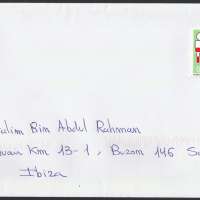 alim Bin Abdul Rahman
uan Km 13-1, Buzon 146 Sa
Ibiza